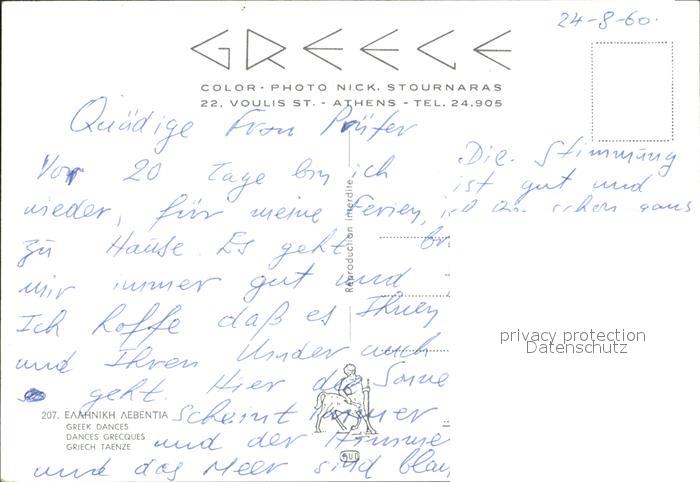 24-8-60.
GREECE
COLOR · PHOTO NICK. STOURNARAS
22. VOULIS ST. - ATHENS - TEL. 24.905
Gnädige Frau Prüfer
Vor 20 Tage bin ich
wieder, für meine Ferien,
zu Hause. Es geht
mir immer gut und
Ich hoffe daß es Ihnen
und Ihren Kinder auch
geht. Hier die Sonne
scheint immer
und der Himme
und das Meer sind blau
Die Stimmung
ist gut und
ich bin schon ganz
br
Reproduction interdite
privacy protection
Datenschutz
207. ΕΛΛΗΝΙΚΗ ΛΕΒΕΝΤΙΑ
GREEK DANCES
DANCES GRECQUES
GRIECH TAENZE